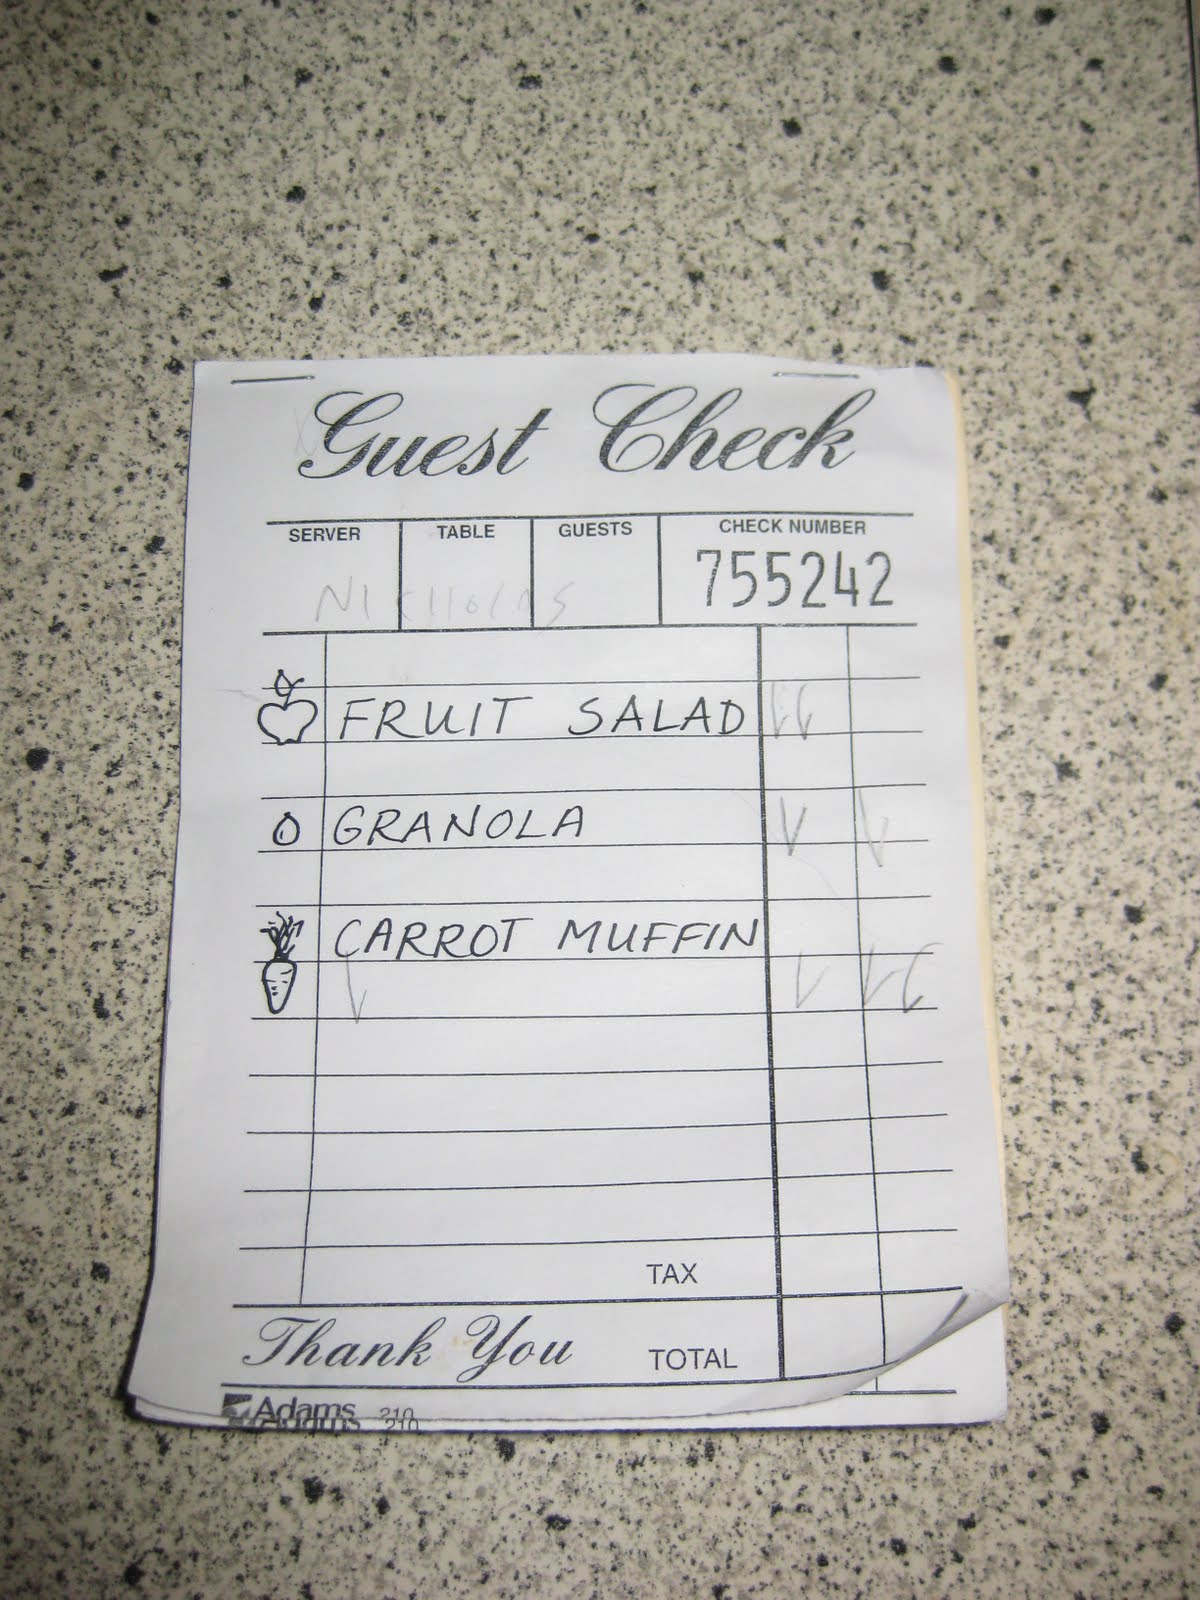 Guest Check
SERVER TABLE GUESTS CHECK NUMBER
NICHOLAS 755242
FRUIT SALAD
GRANOLA
CARROT MUFFIN
TAX
Thank You TOTAL
Adams 210